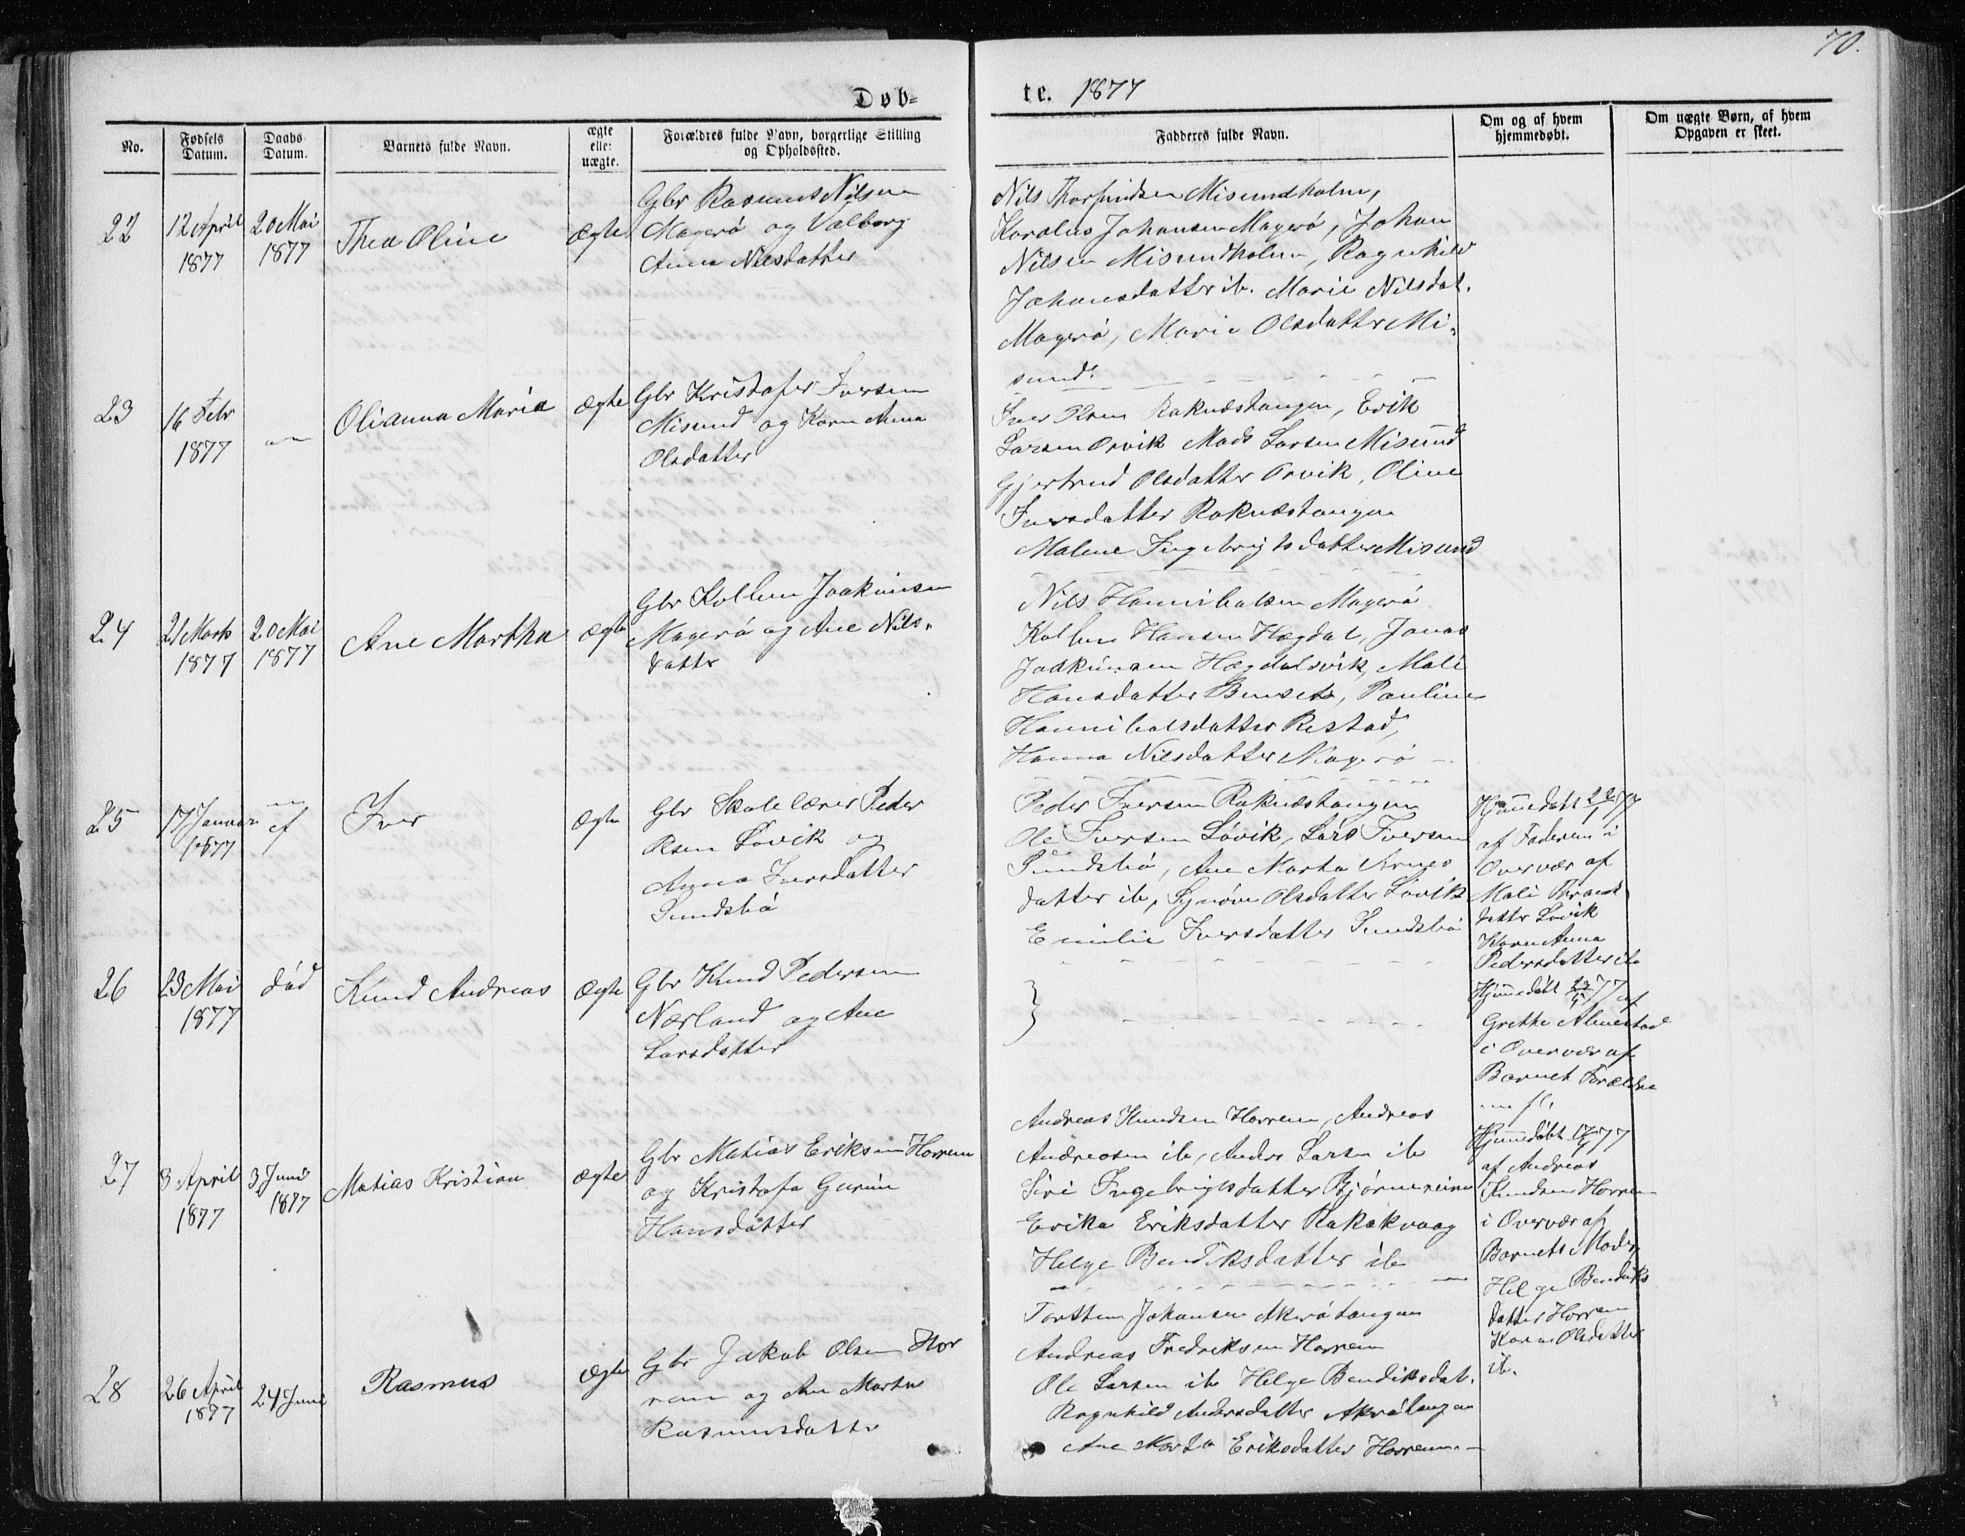 70.
Døb-
te. 1877
No.
Fødsels Datum.
Daabs Datum.
Barnets fulde Navn.
ægte elle: uægte.
Forældres fulde Navn, borgerlige Stilling og Opholdssted.
Fadderes fulde Navn.
Om og af hvem hjemmedøbt.
Om uægte Børn, af hvem Opgaven er skeet.
22
12 April
1877
20 Mai
1877
Thea Oline
ægte
Gbr Rasmus Nilsen
Magerö og Valborg
Anna Nilsdatter
Nils Thorfindsen Misundholm,
Karolus Johansen Magerö, Johan
Nilsen Misundholm, Ragnhild
Johansdatter ib. Marie Nilsdat.
Magerö, Marie Olsdatter Mi-
sund.
23
16 Febr
1877
Olianna Maria
ægte
Gbr Kristofer Iversen
Misund og Karn Anna
Olsdatter
Iver Raknæstangen, Erik
Larsen Orvik Mads Larsen Misund
Gjertrud Olsdatter Orvik, Oline
Iversdatter Raknæstangen
Malene Ingebrigtsdatter Misund
24
21 Marts
1877
20 Mai
1877
Ane Martha
ægte
Gbr Kolben Joakimsen
Magerö og Ane Nils-
datter
Nils Hannibalsen Magerö
Kolben Hansen Hægdal, Jonas
Joakimsen Hægdalsvik, Mali
Hansdatter, Pauline
Hannibalsdatter Restad,
Hanna Nilsdatter Magerö
25
17 Januar
1877
Iver
ægte
Gbr Skolelærer Peder
Lövik og
Anna Iversdatter
Sundsbö
Peder Iversen Raknæstangen
Ole Iversen Lövik, Lars Iversen
Sundsbö, Ane Marta Arnes
datter ib, Synöve Olsdatter Lövik
Emilie Iversdatter Sundsbö
Hjemedöbt 77
af Faderen i
Overvær af
Mali
datter Lövik
Karn Anna
Pedersdatter ib
26
23 Mai
1877
död
Knud Andreas
ægte
Gbr Knud Pedersen
Nærland og Ane
Larsdatter
Hjemedöbt 77 af
Grethe Almestad
i Overvær af
Barnet Forældre
m fl,
27
3 April
1877
3 Juni
1877
Matias Kristian
ægte
Gbr Matias Eriksen Horrem
og Kristofa Gurine
Hansdatter
Andreas Knudsen Horrem, Andreas
Andreasen ib, Anders Larsen ib
Siri Ingebrigtsdatter Björnereim
Erika Eriksdatter Rakakvaag
Helge Bendiksdatter ib
Hjemedöbt 77
af Andreas
Knudsen Horrem
i Overvær af
Barnets Moder,
Helge Bendiks
datter Horrem
Karn Olsdatter
ib.
28
26 April
1877
24 Juni
Rasmus
ægte
Gbr Jakob Olsen Hor
rem og Ane Marta
Rasmusdatter
Torsten Johansen Akerötangen
Andreas Fredriksen Horrem
Ole Larsen ib Helge Bendiksdat.
Ragnhild Andersdatter Akerötangen
Ane Marta Eriksdatter Horrem